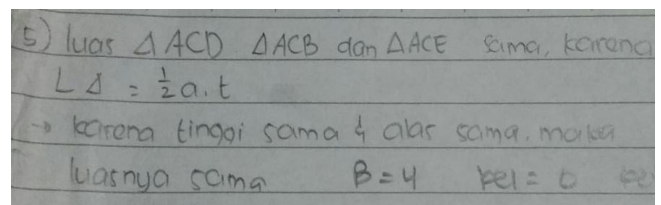 5) luas Δ ACD Δ ACB dan Δ ACE sama, karena
L Δ = ½ a.t
→ karena tinggi sama & alas sama. maka
luasnya sama B = 4 kel = 0